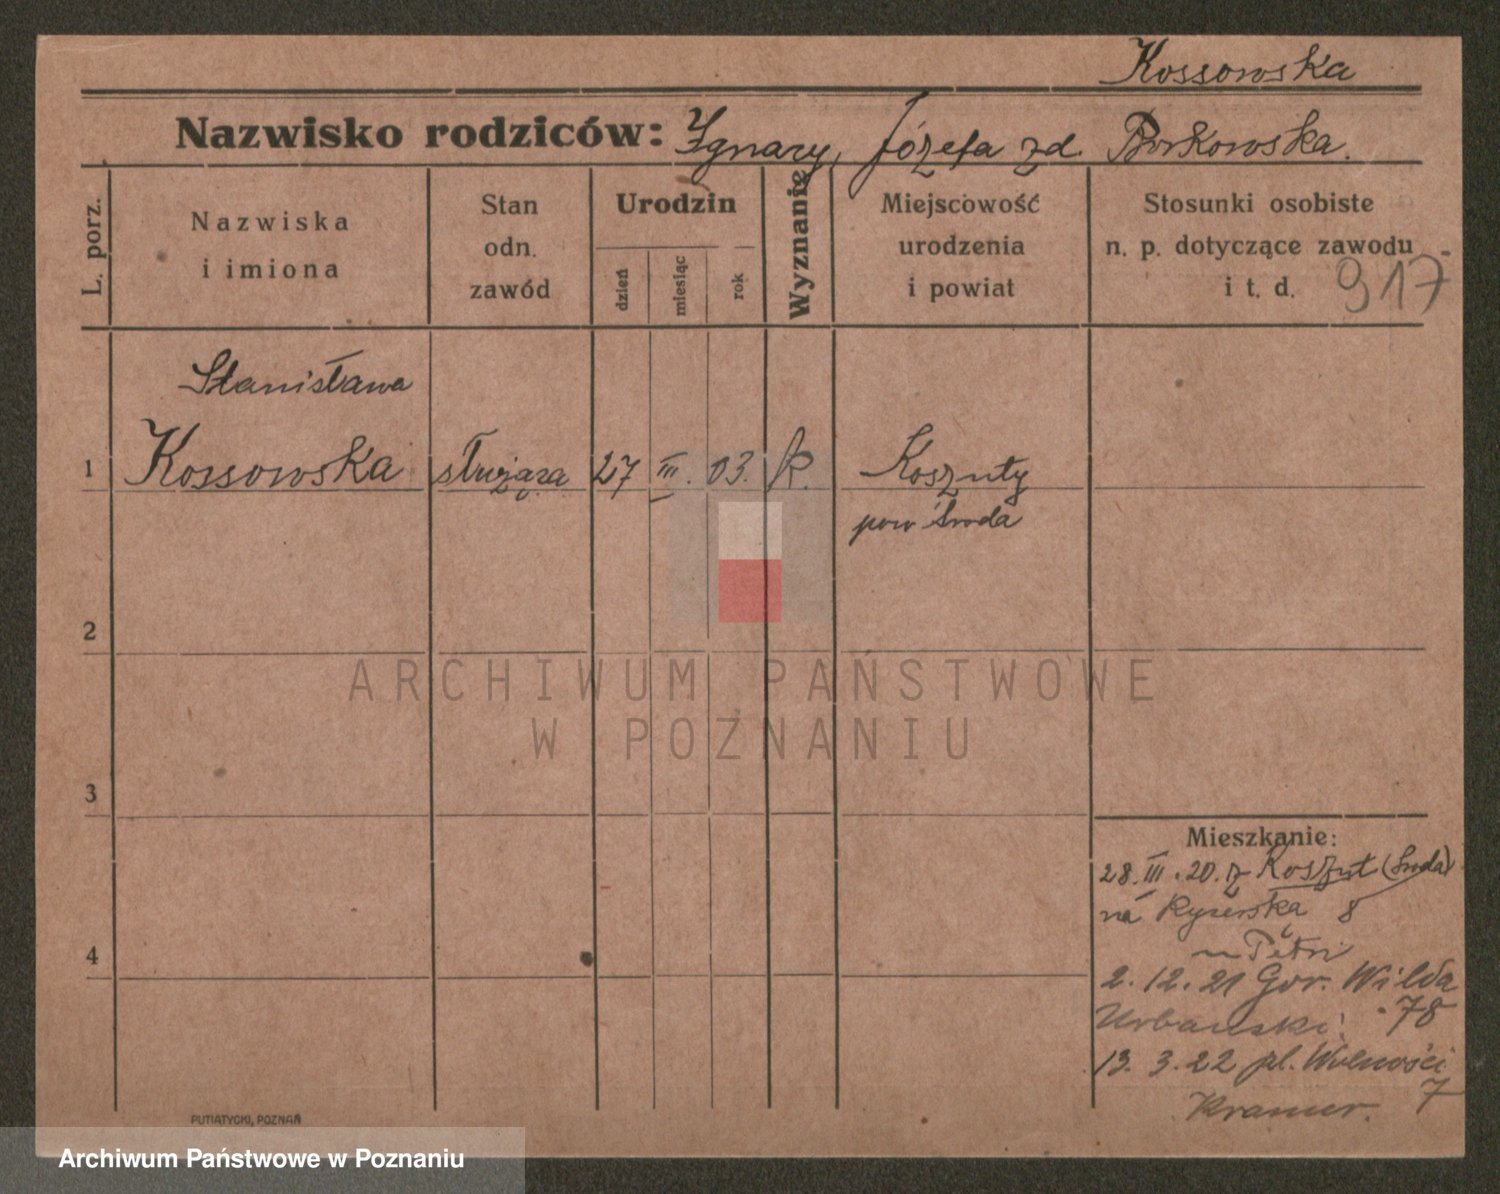 Kossowska
Nazwisko rodziców: Ignacy, Józefa zd. Borkowska.
L. porz.
Nazwiska
i imiona
Stan
odn.
zawód
Urodzin
dzień
miesiąc
rok
Wyznanie
Miejscowość
urodzenia
i powiat
Stosunki osobiste
n. p. dotyczące zawodu
i t. d.
917
Stanisława
1 Kossowska służąca 27 III. 03. k. Koszuty
pow Środa
2
3
4
ARCHIWUM PAŃSTWOWE
W POZNANIU
Mieszkanie:
28. III. 20. z Koszut (Środa)
na 8
2. 12. 21 Gór. Wilda
Urbański 78
13. 3. 22 pl. Wolności
Kramer. 7
PUTIATYCKI, POZNAŃ
Archiwum Państwowe w Poznaniu